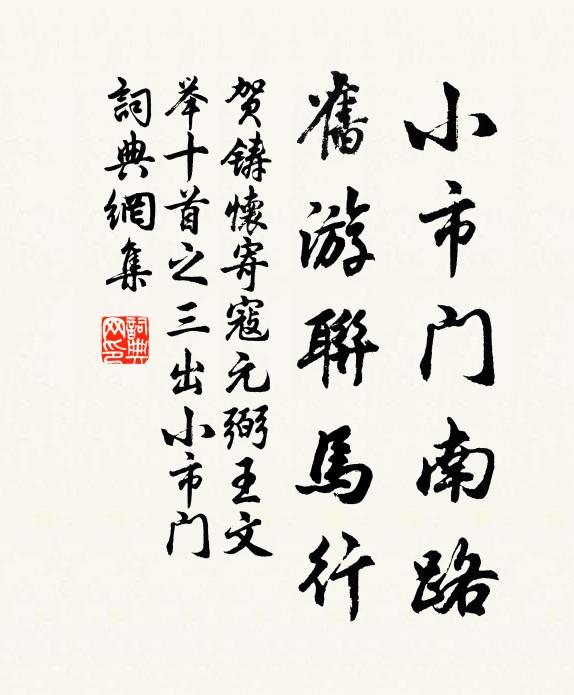 小市门南路
舊游聯馬行
贺鋳懷寄寇元弼王文
举十首之三出小市门
詞典網集
詞典网印